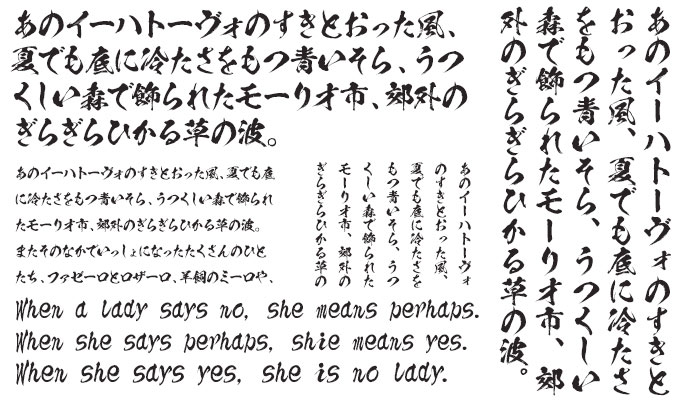 あのイーハトーヴォのすきとおった風、
夏でも底に冷たさをもつ青いそら、うつ
くしい森で飾られたモーリオ市、郊外の
ぎらぎらひかる草の波。
あのイーハトーヴォのすきとおった風、夏でも底
に冷たさをもつ青いそら、うつくしい森で飾られ
たモーリオ市、郊外のぎらぎらひかる草の波。
またそのなかでいっしょになったたくさんのひと
たち、ファゼーロとロザーロ、羊飼のミーロや、
あのイーハトーヴォ
のすきとおった風、
夏でも底に冷たさを
もつ青いそら、うつ
くしい森で飾られた
モーリオ市、郊外の
ぎらぎらひかる草の
When a lady says no, she means perhaps.
When she says perhaps, shie means yes.
When she says yes, she is no lady.
あのイーハトーヴォのすきと
おった風、夏でも底に冷たさ
をもつ青いそら、うつくしい
森で飾られたモーリオ市、郊
外のぎらぎらひかる草の波。